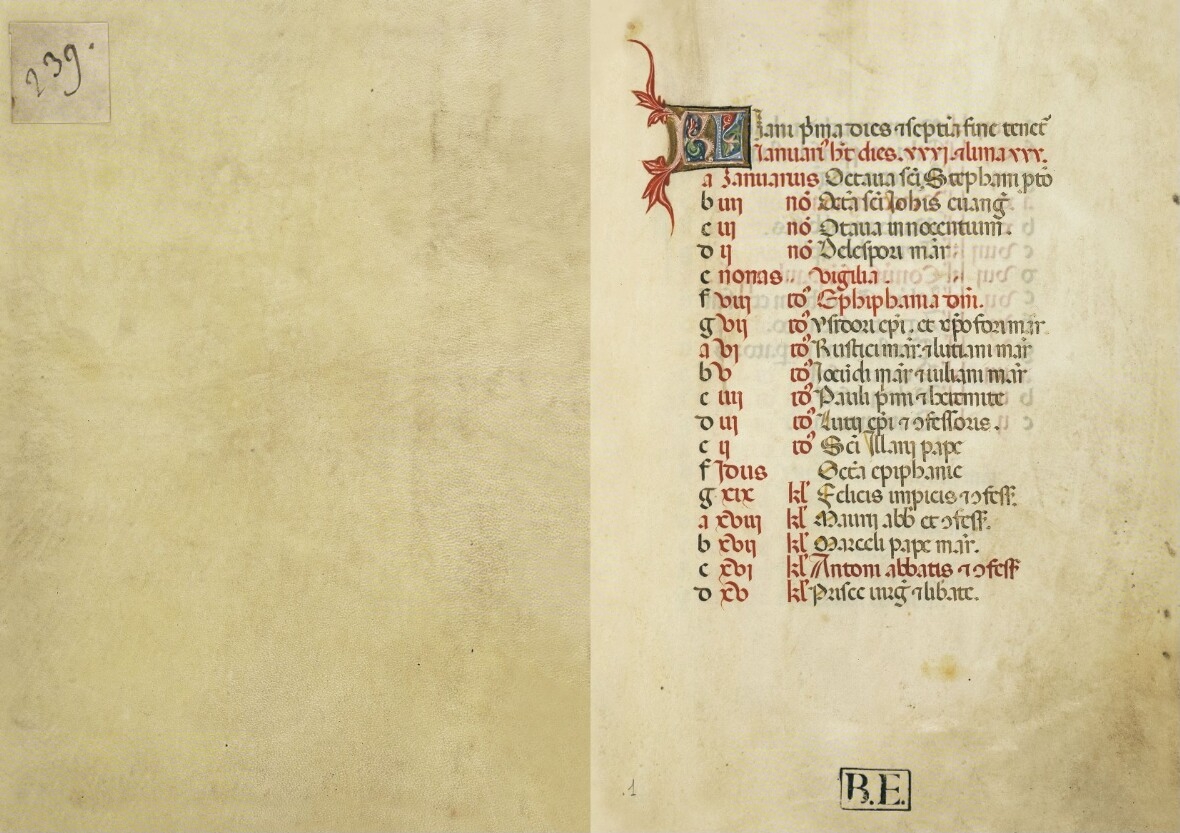 239.
KL Iani pͬma dies ⁊ septīa fine tenet᷑
Ianuari᷒ ht̄ dies. xxxj. ⁊ luna xxx.
a Ianuarius Octaua sc̄i Stephani pto
b iiij nō Octā sc̄i Iohīs euanḡ
c iij nō Otaua innocentium̄.
d ij nō Telespori mār
e nonas. vigilia.
f viij id᷒ Ephiphania dn̄i.
g vij id᷒ ysidori ep̄i. et xp̄ofori mār
a vi id᷒ Rustici mār. ⁊ lutiani mār
b v id᷒ Iocūdi mār ⁊ iuliani mār
c iiij id᷒ Pauli pͥmi ⁊ heremite
d iij id᷒ Lutij ep̄i ⁊ ꝯfessoris.
e ij id᷒ Sc̄i Illarij pape
f Idus Octā epiphanie
g xix kl̄ Felicis inpicis ⁊ ꝯfess̄.
a xviij kl̄ Maurij abb̄ et ꝯfess̄.
b xvij kl̄ Marceli pape mār.
c xvi kl̄ Antoni abbatis ⁊ ꝯfess̄
d xv kl̄ Prisce uirḡ ⁊ libate.
1
B.E.